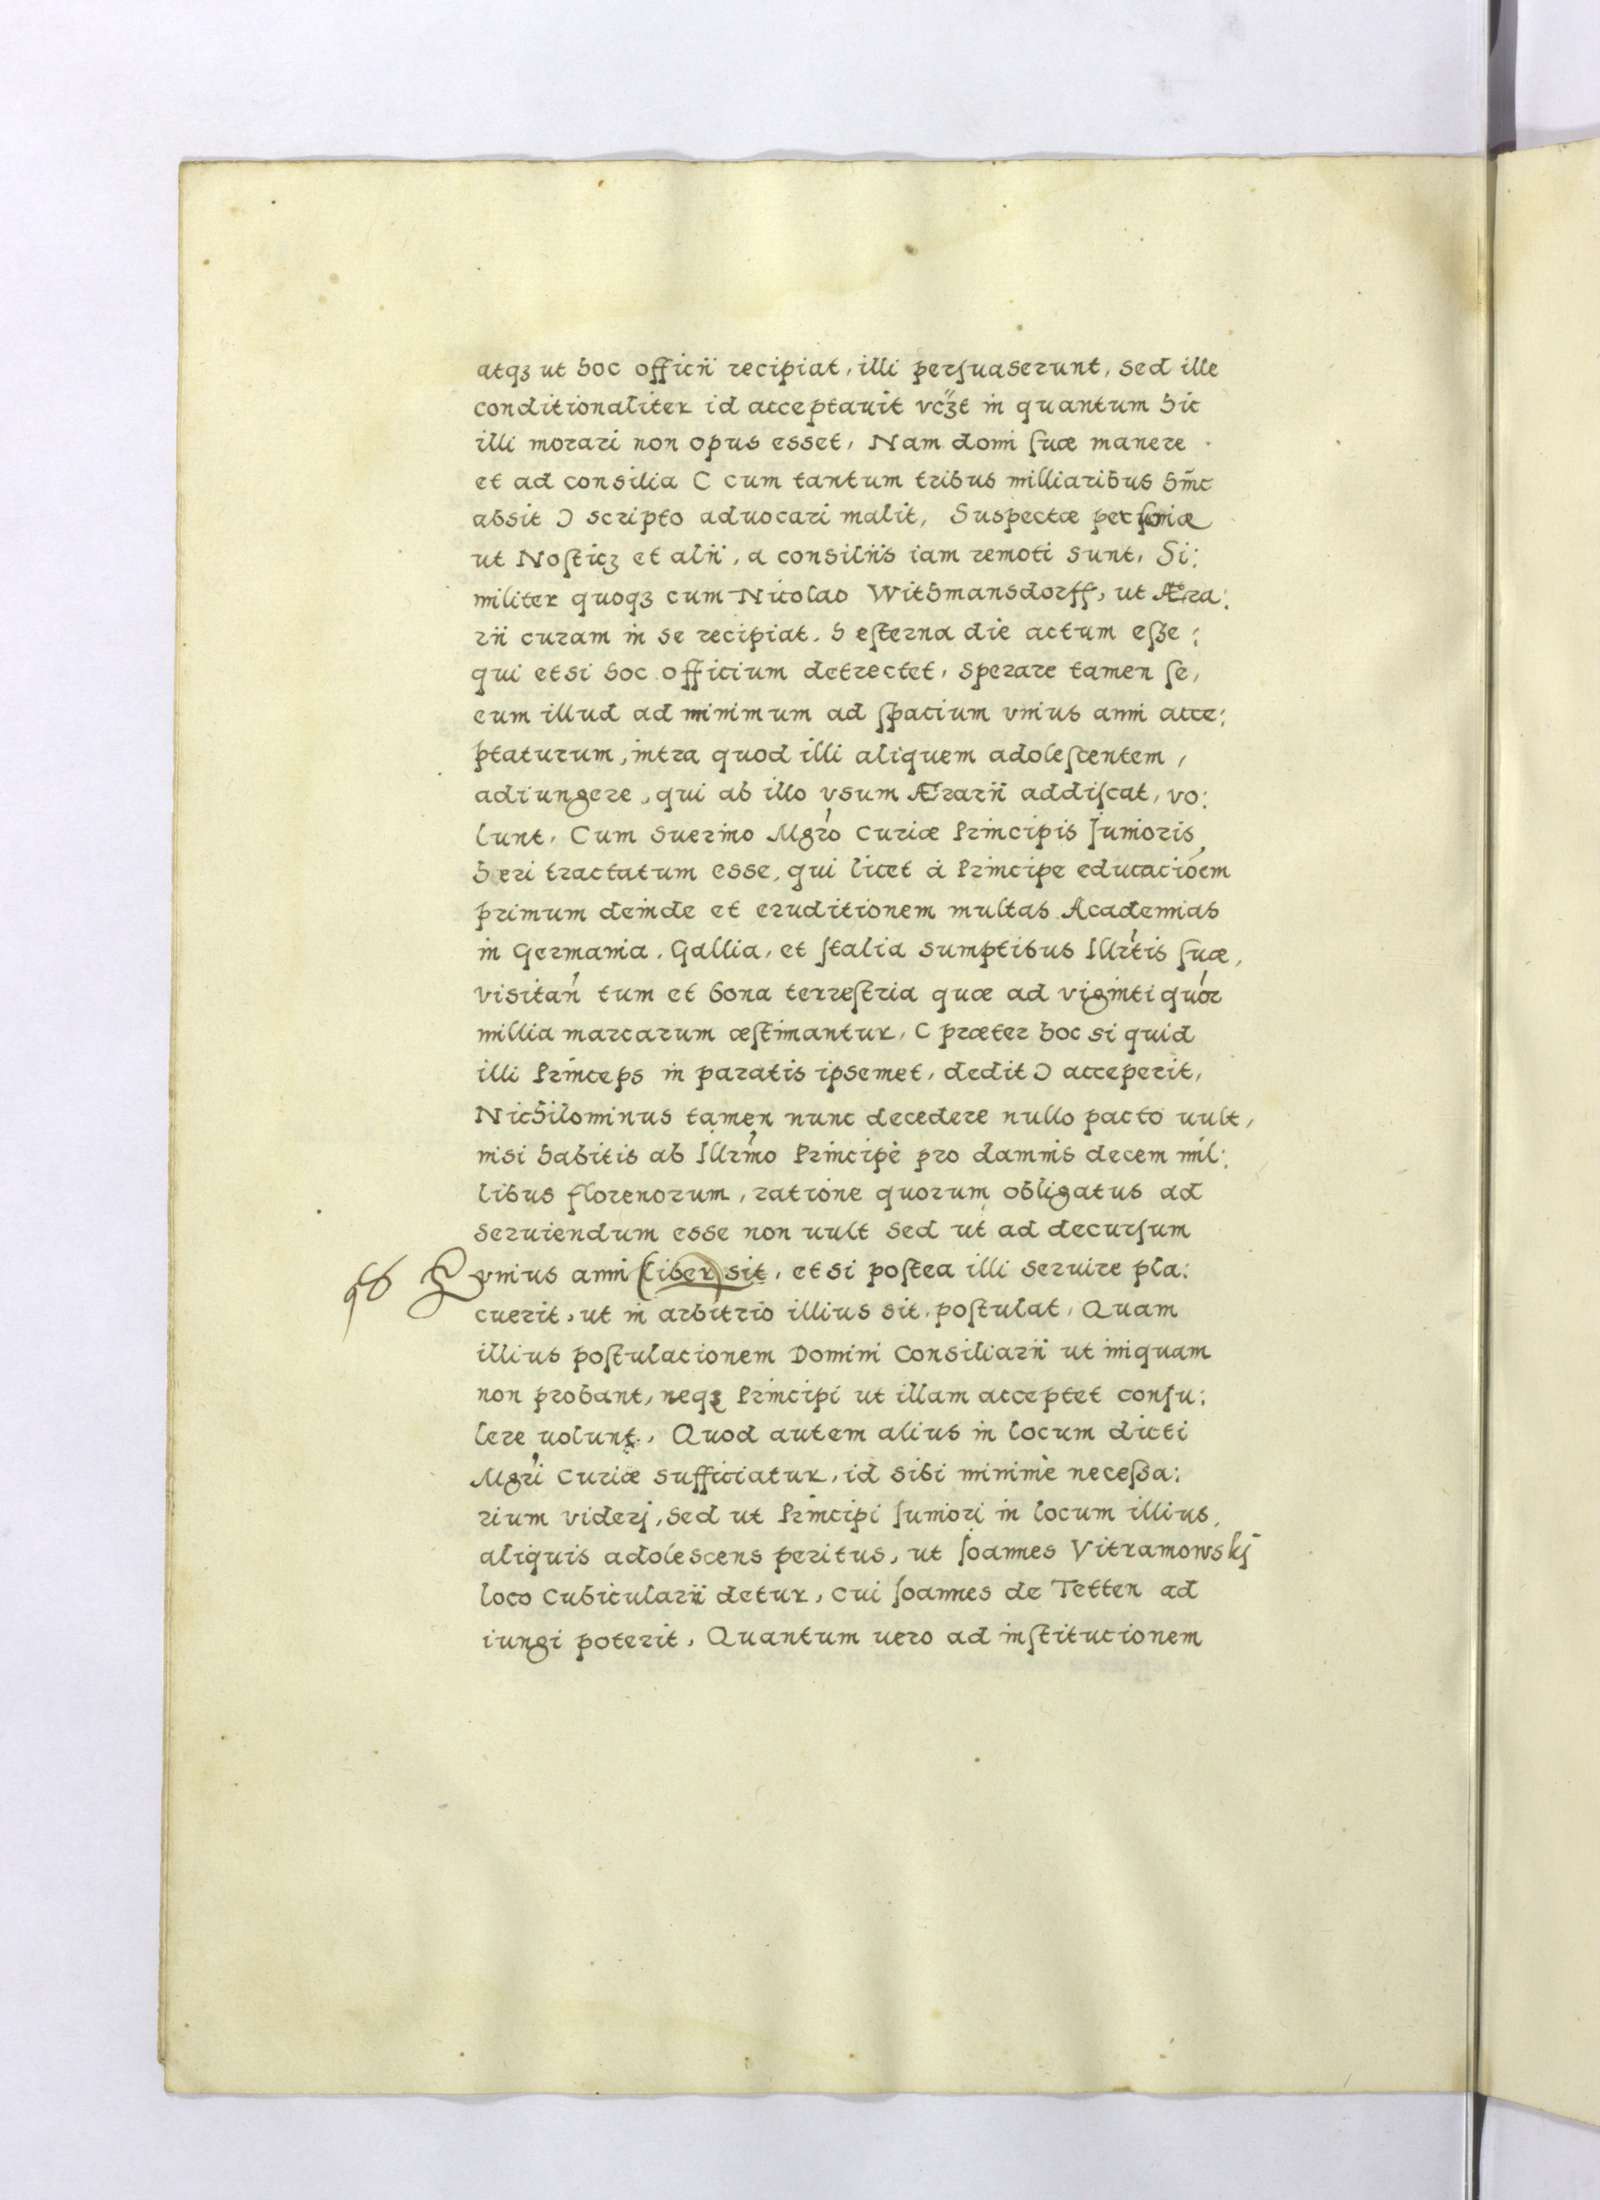 atqꝫ ut hoc officii recipiat, illi persuaserunt, sed ille
conditionaliter id acceptavit vcꝫt in quantum hic
illi morari non opus esset, Nam domi suæ manere
et ad consilia ( cum tantum tribus milliaribus hinc
absit ) scripto advocari malit, Suspectæ personæ
ut Nosticz et alii, a consiliis iam remoti sunt, Si:
militer quoqꝫ cum Nicolao Withmansdorff, ut Æra:
rii curam in se recipiat, hesterna die actum esse:
qui etsi hoc officium detrectet, sperare tamen se,
eum illud ad minimum ad spacium vnius anni acce:
ptaturum, intra quod illi aliquem adolescentem,
adiungere, qui ab illo vsum Ærarii addiscat, vo:
lunt, Cum Suerino Mgrö Curiæ Principis Junioris
heri tractatum esse, qui licet à Principe educacióem
primum deinde et eruditionem multas Academias
in Germania, Gallia, et Italia sumptibus Illrtis suæ,
visitan tum et bona terrestria quæ ad viginti quór
millia marcarum æstimantur, ( præter hoc si quid
illi Princeps in paratis ipsemet, dedit ) acceperit,
Nichilominus tamen nunc decedere nullo pacto uult,
nisi habitis ab Illrmo Principe pro damnis decem mil:
libus florenorum, ratione quorum obligatus ad
seruiendum esse non uult sed ut ad decursum
vnius anni (liber) sit, etsi postea illi seruire pla:
cuerit, ut in arbitrio illius sit, postulat, Quam
illius postulacionem Domini Consiliarii ut iniquam
non probant, neqꝫ Principi ut illam acceptet consu:
lere uolunt, Quod autem alius in locum dicti
Mgri Curiæ sufficiatur, id sibi minimè necessa:
rium viderj, sed ut Principi Juniori in locum illius,
aliquis adolescens peritus, ut Joannes Vitramowskj
loco Cubicularii detur, cui Joannes de Tetten ad
iungi poterit, Quantum uero ad institucionem